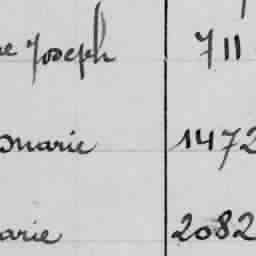 Joseph 711
marie 1472
arie 2082